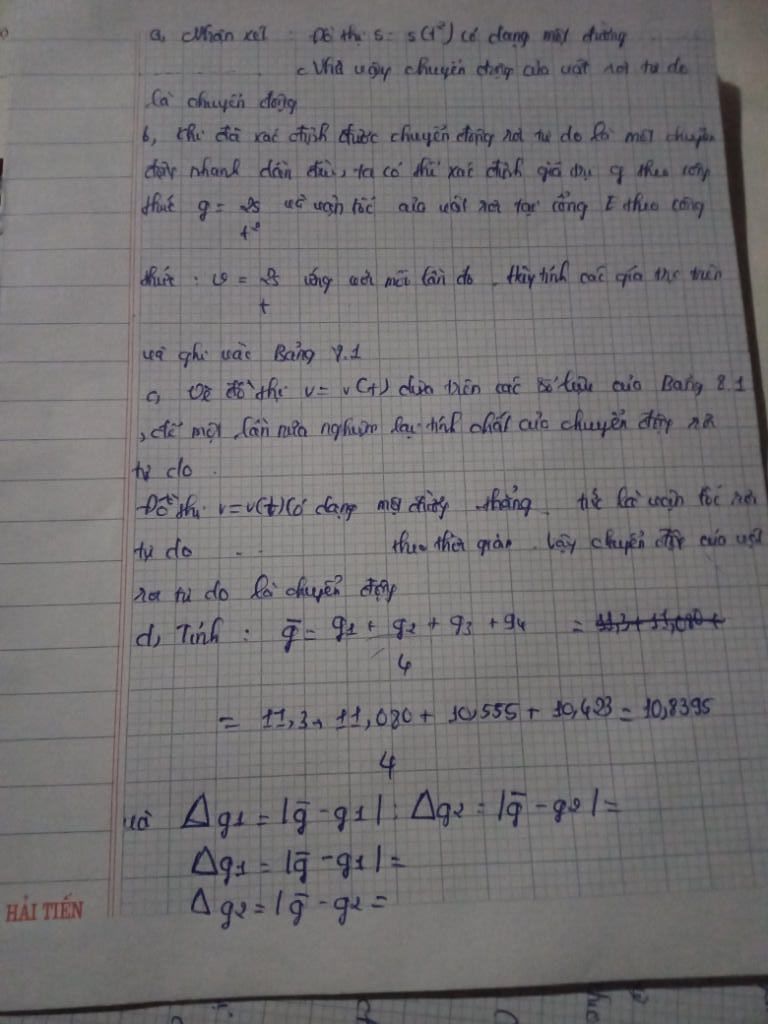 a, Nhận xét : Đồ thị s = s(t²) có dạng một đường
. . . . . . . . Như vậy chuyển động của vật rơi tự do
là chuyển động
b, Khi đã xác định được chuyển động rơi tự do là một chuyển
động nhanh dần đều, ta có thể xác định giá trị g theo công
thức g = 2s/t² và vận tốc của vật rơi tại cổng E theo công
thức : v = 2s/t ứng với mỗi lần đo. Hãy tính các giá trị trên
và ghi vào Bảng 8.1
c, Vẽ đồ thị v = v(t) dựa trên các số liệu của Bảng 8.1
, để một lần nữa nghiệm lại tính chất của chuyển động rơi
tự do .
Đồ thị v = v(t) có dạng một đường thẳng, tức là vận tốc rơi
tự do . . theo thời gian. Vậy chuyển động của vật
rơi tự do là chuyển động
d, Tính : g̅ = g1 + g2 + g3 + g4 / 4 =
= 11,3 + 11,080 + 10,555 + 10,423 / 4 = 10,8395
và Δg1 = |g̅ - g1| ; Δg2 = |g̅ - g2| =
Δg1 = |g̅ - g1| =
Δg2 = |g̅ - g2 =
HẢI TIẾN